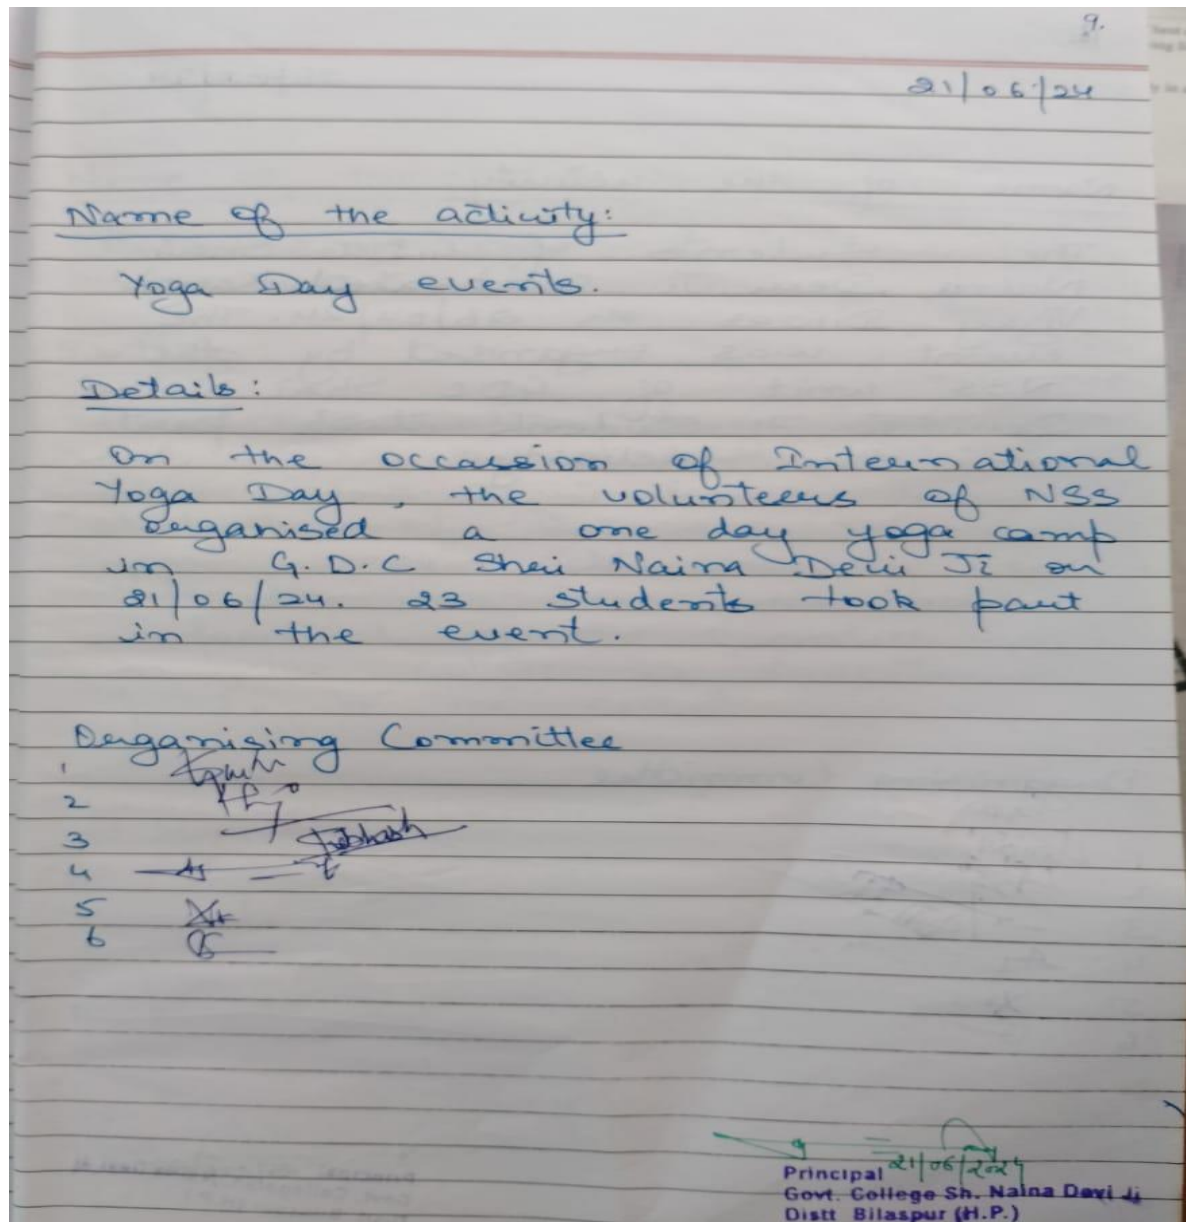 9.
21/06/24
Name of the activity:
Yoga Day events.
Details:
On the occassion of International
Yoga Day, the volunteers of NSS
organised a one day yoga camp
in G.D.C Shri Naina Devi Ji on
21/06/24. 23 students took part
in the event.
Organising Committee
1
2
3 Subhash
4
5
6
21/06/2024
Principal
Govt. College Sh. Naina Devi Ji
Distt Bilaspur (H.P.)